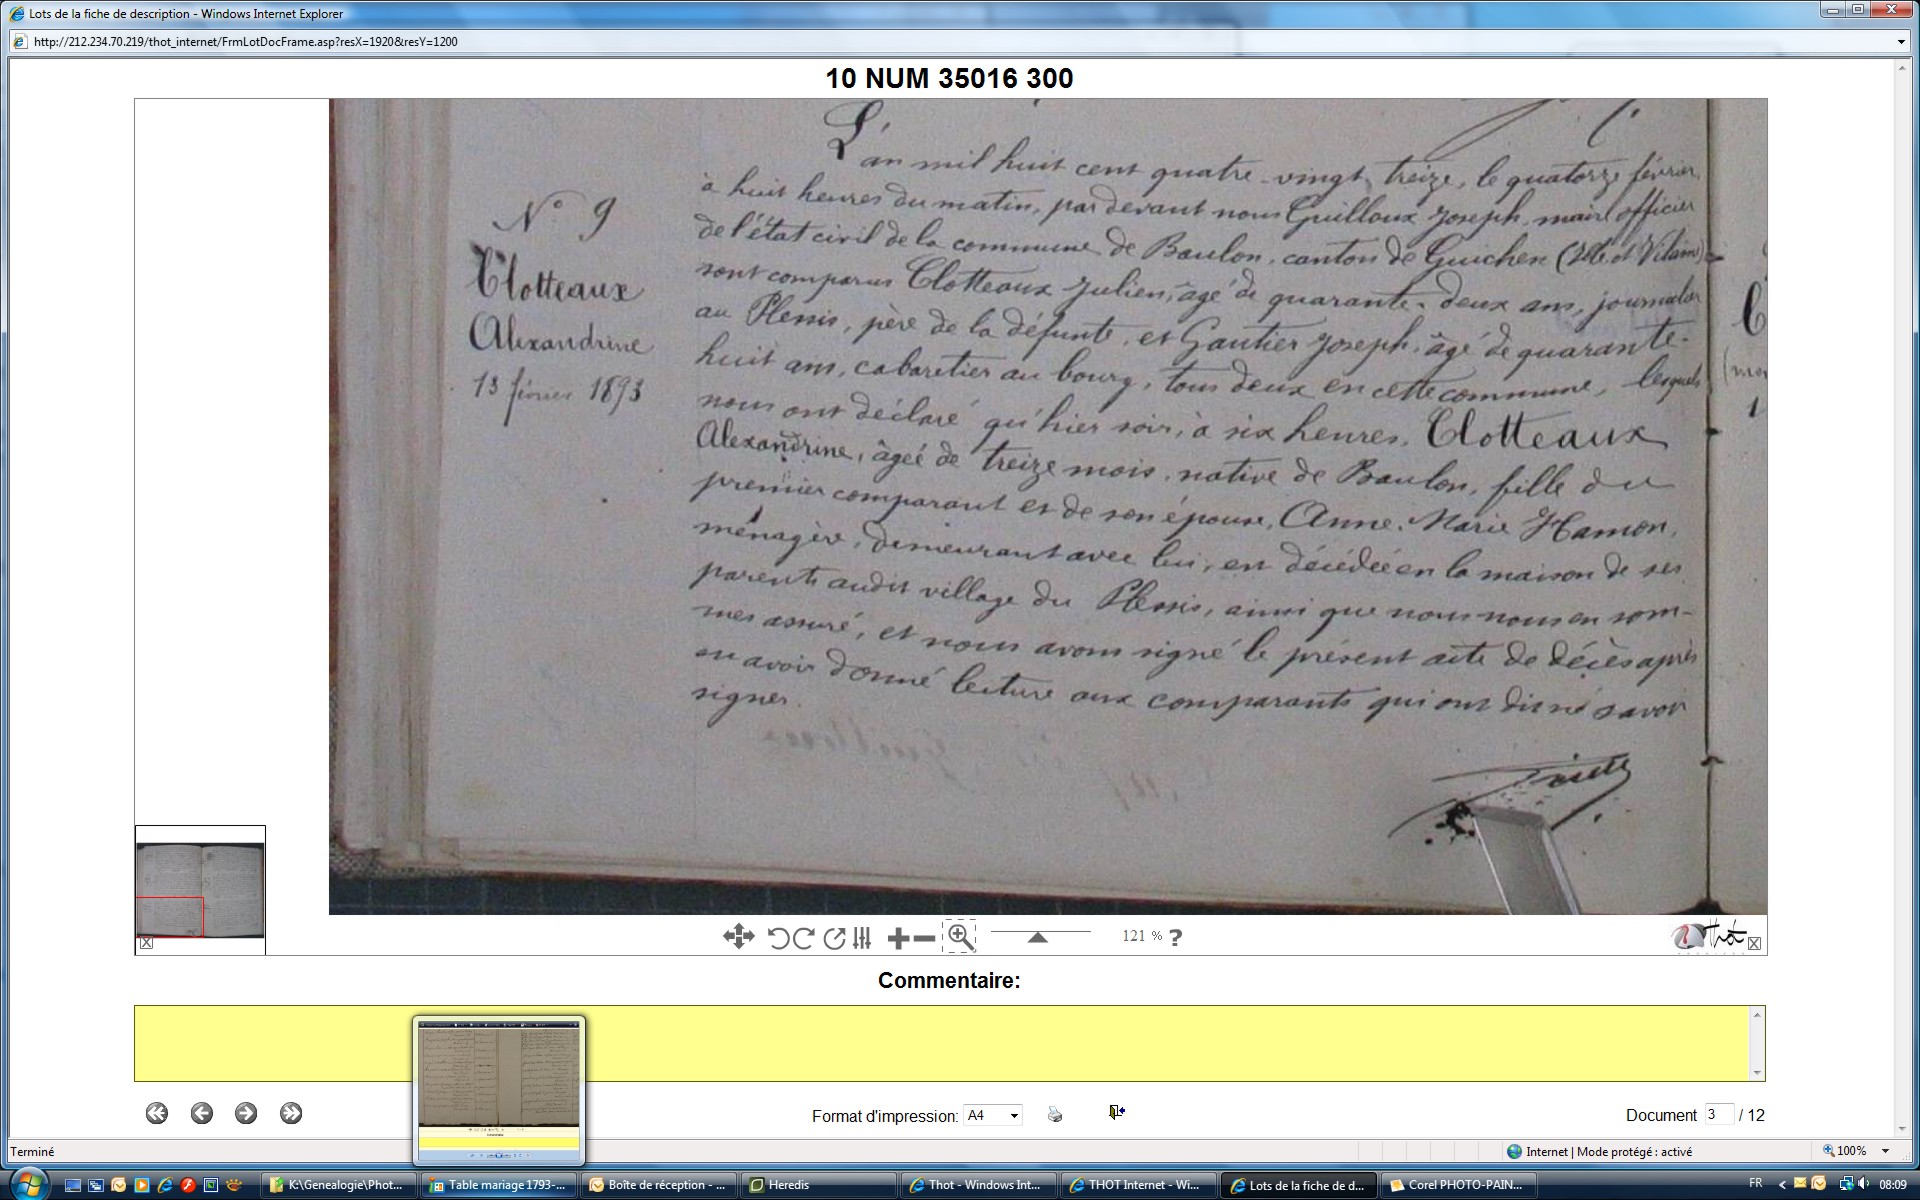 Lots de la fiche de description - Windows Internet Explorer
http://212.234.70.219/thot_internet/FrmLotDocFrame.asp?resX=1920&resY=1200
10 NUM 35016 300
N° 9
Clotteaux
Alexandrine
13 février 1893
L'an mil huit cent quatre-vingt treize, le quatorze février
à huit heures du matin, par devant nous Guilloux Joseph, maire officier
de l'état civil de la commune de Baulon, canton de Guichen (Ille et Vilaine)
sont comparus Clotteaux Julien, âgé de quarante-deux ans, journalier
au Plessis, père de la défunte, et Gautier Joseph, âgé de quarante-
huit ans, cabaretier au bourg, tous deux en cette commune, lesquels
nous ont déclaré qu'hier soir, à six heures, Clotteaux
Alexandrine, âgée de treize mois, native de Baulon, fille du
premier comparant et de son épouse, Anne-Marie Hamon,
ménagère, demeurant avec lui, est décédée en la maison de ses
parents audit village du Plessis, ainsi que nous nous en som-
mes assuré, et nous avons signé le présent acte de décès après
en avoir donné lecture aux comparants qui ont dit ne savoir
signer.
121 % ?
Thot
Commentaire:
Format d'impression: A4
Document 3 / 12
Terminé
Internet | Mode protégé : activé
100%
K:\Genealogie\Phot...
Table mariage 1793-...
Boîte de réception - ...
Heredis
Thot - Windows Int...
THOT Internet - Wi...
Lots de la fiche de d...
Corel PHOTO-PAIN...
FR
08:09